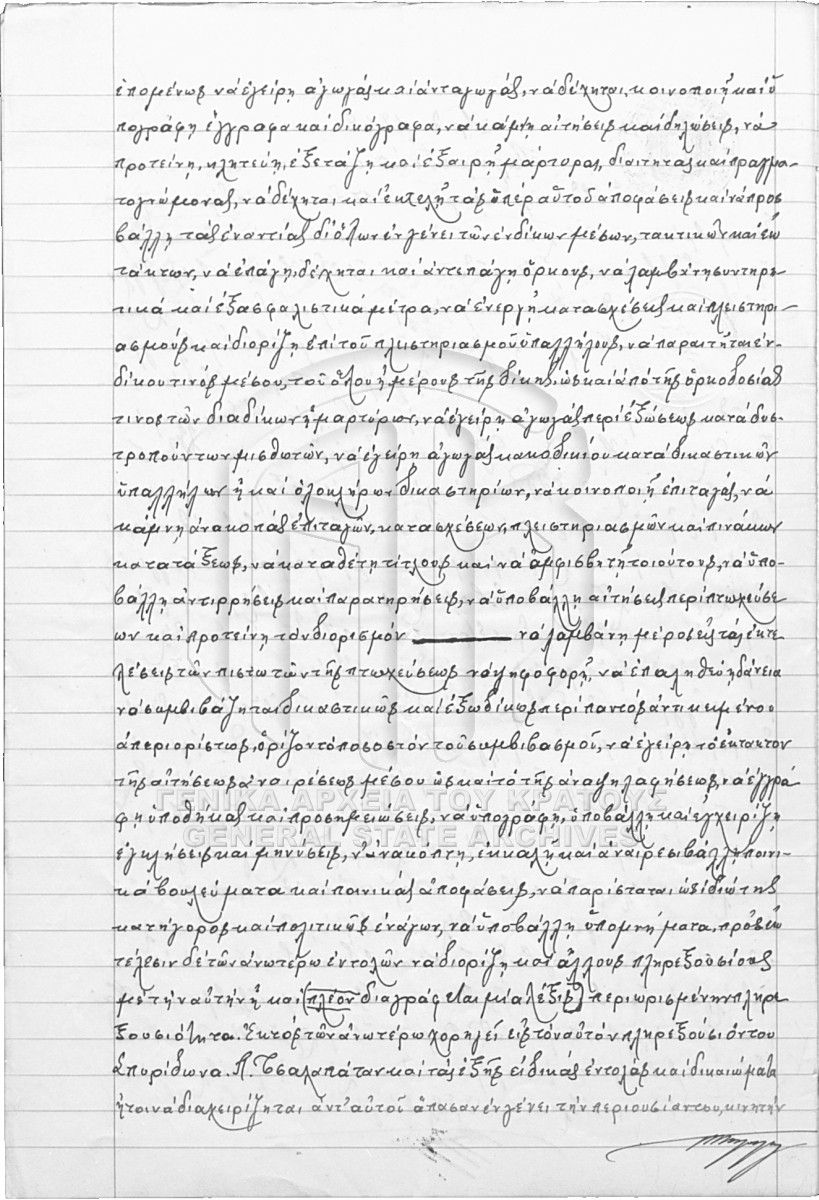 ἑπομένως νά ἐγείρῃ ἀγωγάς καί ἀνταγωγάς, νά δέχηται, κοινοποιῇ καί ὑ
πογράφῃ ἔγγραφα καί δικόγραφα, νά κάμνῃ αἰτήσεις καί δηλώσεις, νά
προτείνῃ, κλητεύῃ, ἐξετάζῃ καί ἐξαιρῇ μάρτυρας, διαιτητάς καί πραγμα-
τογνώμονας, νά δέχηται καί ἐκτελῇ τάς ὑπέρ αὐτοῦ ἀποφάσεις καί νά προσ
βάλλῃ τάς ἐναντίας δι' ὅλων ἐν γένει τῶν ἐνδίκων μέσων, τακτικῶν καί ἐκ
τάκτων, νά ἐπάγῃ, δέχηται καί ἀντεπάγῃ ὅρκους, νά λαμβάνῃ συντηρη-
τικά καί ἐξασφαλιστικά μέτρα, νά ἐνεργῇ κατασχέσεις καί πλειστηρι-
ασμούς καί διορίζῃ ἐπί τοῦ πλιστηριασμοῦ ὑπαλλήλους, νά παραιτῆται ἐν-
δίκου τινός μέσου, τοῦ ὅλου ἤ μέρους τῆς δίκης, ὡς καί ἀπό τῆς ὁρκοδοσίας
τινος τῶν διαδίκων ἤ μαρτύρων, νά ἐγείρῃ ἀγωγάς περί ἐξώσεως κατά δυσ-
τροπούντων μισθωτῶν, νά ἐγείρῃ ἀγωγάς κακοδικίου κατά δικαστικῶν
ὑπαλλήλων ἤ καί ὁλοκλήρων δικαστηρίων, νά κοινοποιῇ ἐπιταγάς, νά
κάμνῃ ἀνακοπάς ἐπιταγῶν, κατασχέσεων, πλειστηριασμῶν καί πινάκων
κατατάξεως, νά καταθέτῃ τίτλους καί νά ἀμφισβητῇ τοιούτους, νά ὑπο-
βάλλῃ ἀντιρρήσεις καί παρατηρήσεις, νά ὑποβάλλῃ αἰτήσεις περί πτωχεύσε
ων καί προτείνῃ τόν διορισμόν νά λαμβάνῃ μέρος εἰς τάς ἐκτε
λέσεις τῶν πιστωτῶν τῆς πτωχεύσεως νά ψηφοφορῇ, νά ἐπαληθεύῃ δάνεια
νά συμβιβάζηται δικαστικῶς καί ἐξωδίκως περί παντός ἀντικειμένου
ἀπεριορίστως, ὁρίζον τό ποσοστόν τοῦ συμβιβασμοῦ, νά ἐγείρῃ τό ἔκτακτον
τῆς αἰτήσεως ἀναιρέσεως μέσου ὡς καί τό τῆς ἀναψηλαφήσεως, νά ἐγγρά
φῃ ὑποθήκας καί προσημειώσεις, νά ὑπογράφῃ, ὑποβάλλῃ καί ἐγχειρίζῃ
ἐγκλήσεις καί μηνύσεις, ν' ἀνακόπτῃ, ἐκκαλῇ καί ἀναιρεσιβάλλῃ ποινι-
κά βουλεύματα καί ποινικάς ἀποφάσεις, νά παρίσταται ὡς ἰδιώτης
κατήγορος καί πολιτικῶς ἐνάγων, νά ὑποβάλλῃ ὑπομνήματα, πρός ἐκ
τέλεσιν δέ τῶν ἀνωτέρω ἐντολῶν νά διορίζῃ καί ἄλλους πληρεξουσίους
μέ τήν αὐτήν ἤ καί (πλέον διαγράφεται μία λέξις) περιωρισμένην πληρε
ξουσιότητα. Ἐκτός τῶν ἀνωτέρω χορηγεῖ εἰς τόν αὐτόν πληρεξούσιόν του
Σπυρίδωνα. Π. Τσαλαπάταν καί τάς ἑξῆς εἰδικάς ἐντολάς καί δικαιώματα
ἤτοι νά διαχειρίζηται ἀντ' αὐτοῦ ἅπασαν ἐν γένει τήν περιουσίαν του, κινητήν
ΓΕΝΙΚΑ ΑΡΧΕΙΑ ΤΟΥ ΚΡΑΤΟΥΣ
GENERAL STATE ARCHIVES